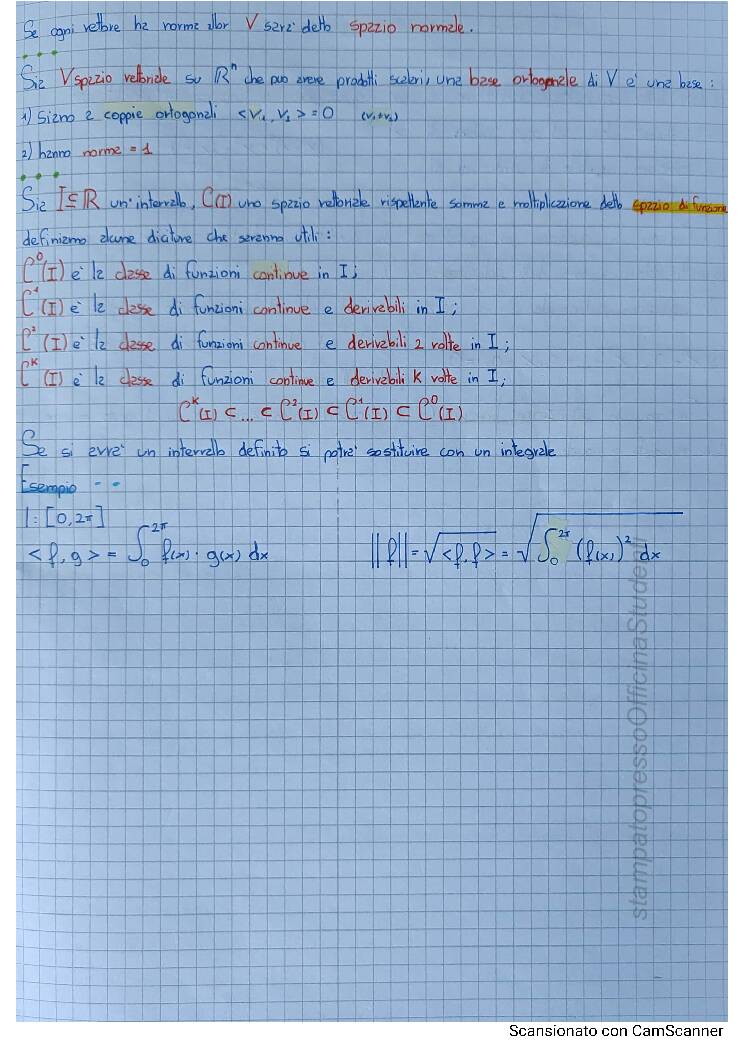 Se ogni vettore ha norma allor V sara' detto spazio normale.
Sia V spazio vettoriale su ℝⁿ che puo avere prodotti scalari, una base ortogonale di V e' una base :
1) Siano a coppie ortogonali <V₁, V₂> = 0 (V₁≠V₂)
2) hanno norma = 1
Sia I ⊆ ℝ un' intervallo, C(I) uno spazio vettoriale rispettante somma e moltiplicazione detto spazio di funzione
definiamo alcune diciture che saranno utili :
C⁰(I) e' la classe di funzioni continue in I;
C¹(I) e' la classe di funzioni continue e derivabili in I;
C²(I) e' la classe di funzioni continue e derivabili 2 volte in I;
Cᴷ(I) e' la classe di funzioni continue e derivabili K volte in I;
Cᴷ(I) ⊂ ... ⊂ C²(I) ⊂ C¹(I) ⊂ C⁰(I)
Se si avra' un intervallo definito si potra' sostituire con un integrale
Esempio - -
I : [0,2π]
<f,g> = ∫₀²π f(x) · g(x) dx ||f|| = √<f,f> = √∫₀²π (f(x))² dx
stampatopressoOfficinaStudenti
Scansionato con CamScanner